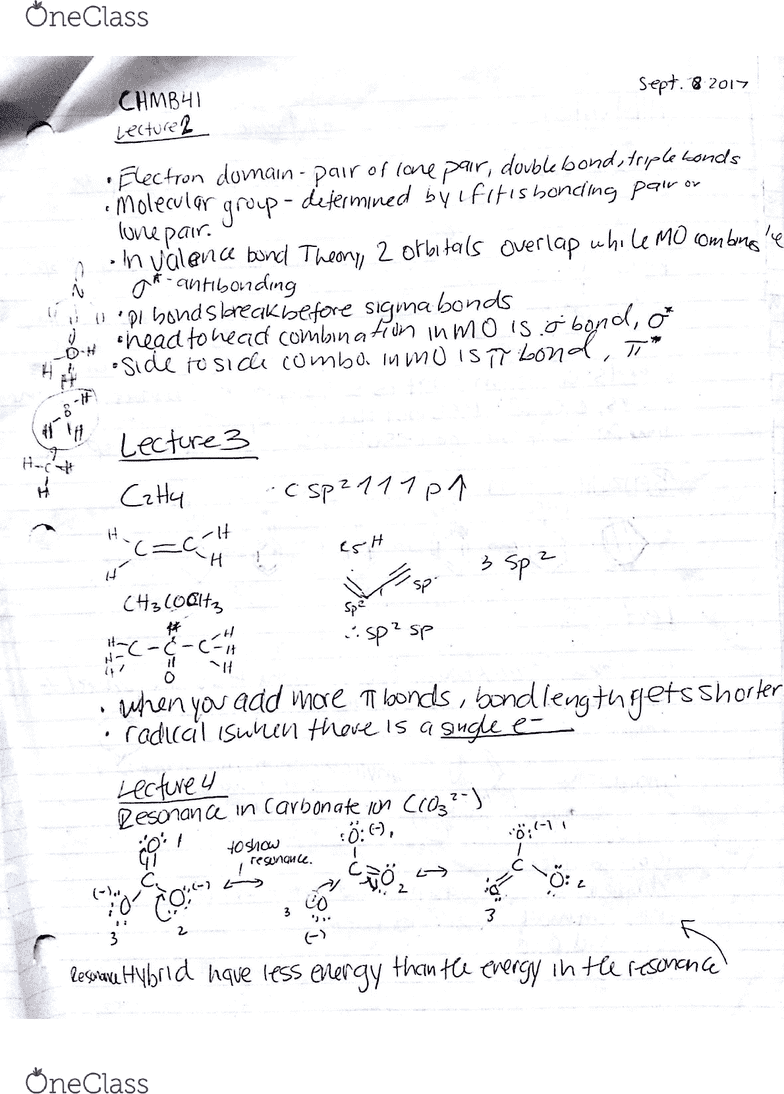 OneClass
Sept. 8 2017
CHMB41
Lecture 2
• Electron domain - pair of lone pair, double bond, triple bonds
• Molecular group - determined by if it is bonding pair or
lone pair.
• In valence bond Theory, 2 orbitals overlap while MO combine
σ* - antibonding
• pi bonds break before sigma bonds
• head to head combination in MO is σ bond, σ*
• Side to side combo. in MO is π bond, π*
Lecture 3
C2H4
C sp² 1 1 1 p 1
H H
C=C
H H
C5H
3 sp²
sp
sp²
∴ sp² sp
CH3COCH3
H H
H-C-C-C-H
H H
O
• when you add more π bonds, bond length gets shorter
• radical is when there is a single e-
Lecture 4
Resonance in Carbonate ion C(O3²⁻)
:O: 1
to show
resonance.
:Ö: (-) 1
:Ö: (-) 1
C
C=Ö 2
C
(-) :O: 3
:O: (-) 2
3 :O: (-)
:O 3
Ö: 2
Resonance Hybrid have less energy than the energy in the resonance
OneClass